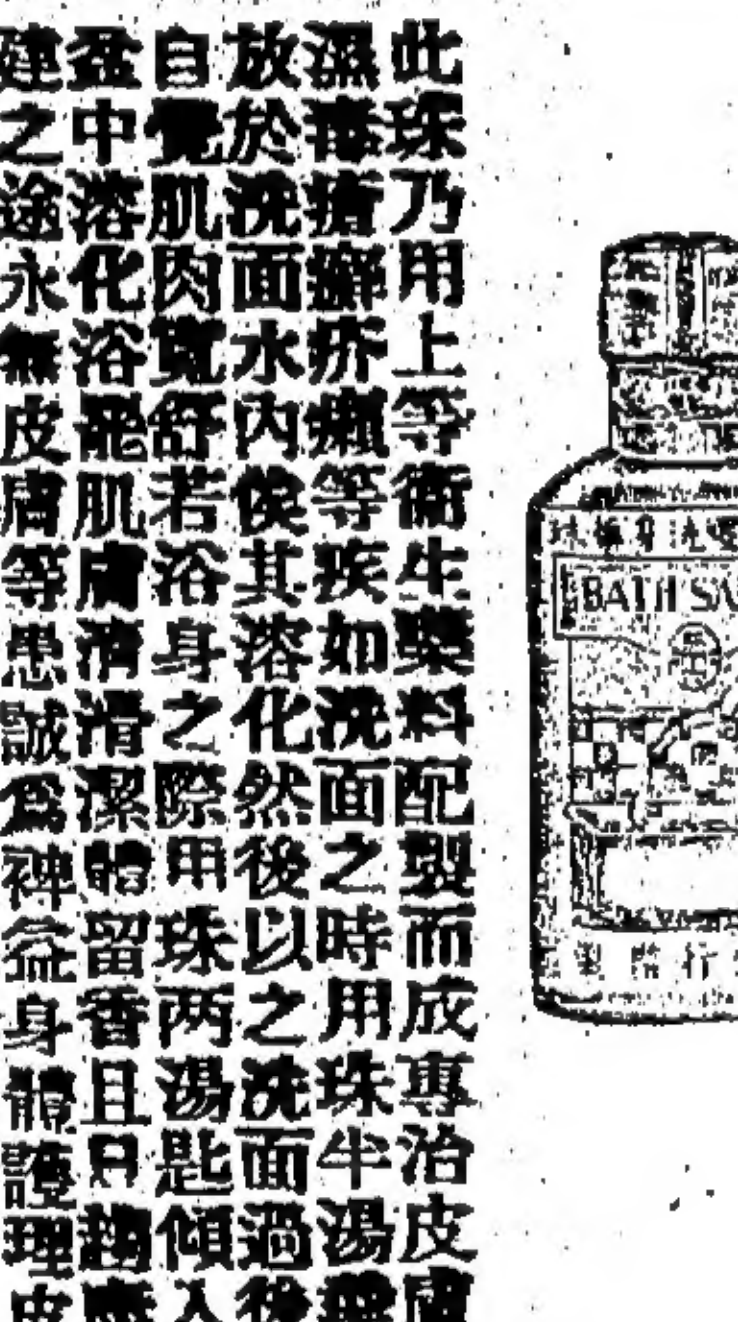 此珠乃用上等衛生藥料配製而成專治皮膚
濕毒瘡癬疥癩等疾如洗面之時用珠半湯匙
放於洗面水內俟其溶化然後以之洗面過後
自覺肌肉寬舒若浴身之際用珠两湯匙傾入
盆中溶化浴罷肌膚清滑潔體留香且只趨康
建之途永無皮膚等患誠爲裨益身體護理皮
BATH SA